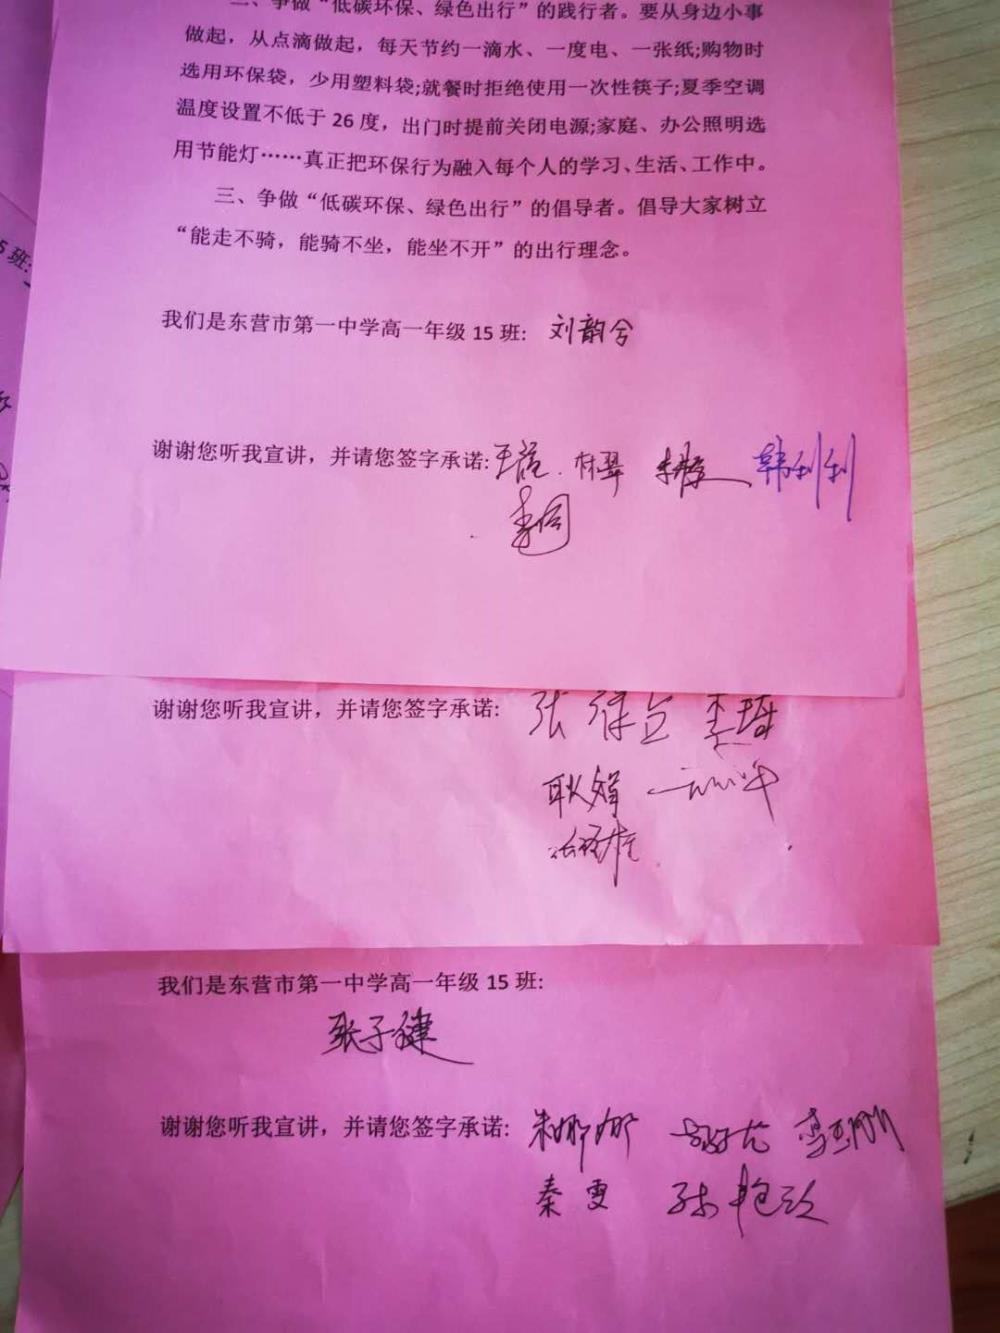 二、争做“低碳环保、绿色出行”的践行者。要从身边小事
做起，从点滴做起，每天节约一滴水、一度电、一张纸;购物时
选用环保袋，少用塑料袋;就餐时拒绝使用一次性筷子;夏季空调
温度设置不低于 26 度，出门时提前关闭电源;家庭、办公照明选
用节能灯……真正把环保行为融入每个人的学习、生活、工作中。
三、争做“低碳环保、绿色出行”的倡导者。倡导大家树立
“能走不骑，能骑不坐，能坐不开”的出行理念。
5 班:
我们是东营市第一中学高一年级 15 班: 刘韵兮
谢谢您听我宣讲，并请您签字承诺: 韩利利
谢谢您听我宣讲，并请您签字承诺: 张
耿娟
我们是东营市第一中学高一年级 15 班:
张子健
谢谢您听我宣讲，并请您签字承诺: 朱娜娜
秦雯